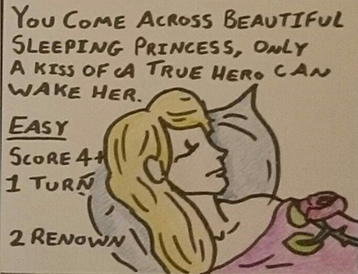 You Come Across Beautiful
Sleeping Princess, only
a kiss of a true hero can
wake her.
Easy
Score 4+
1 Turn
2 Renown